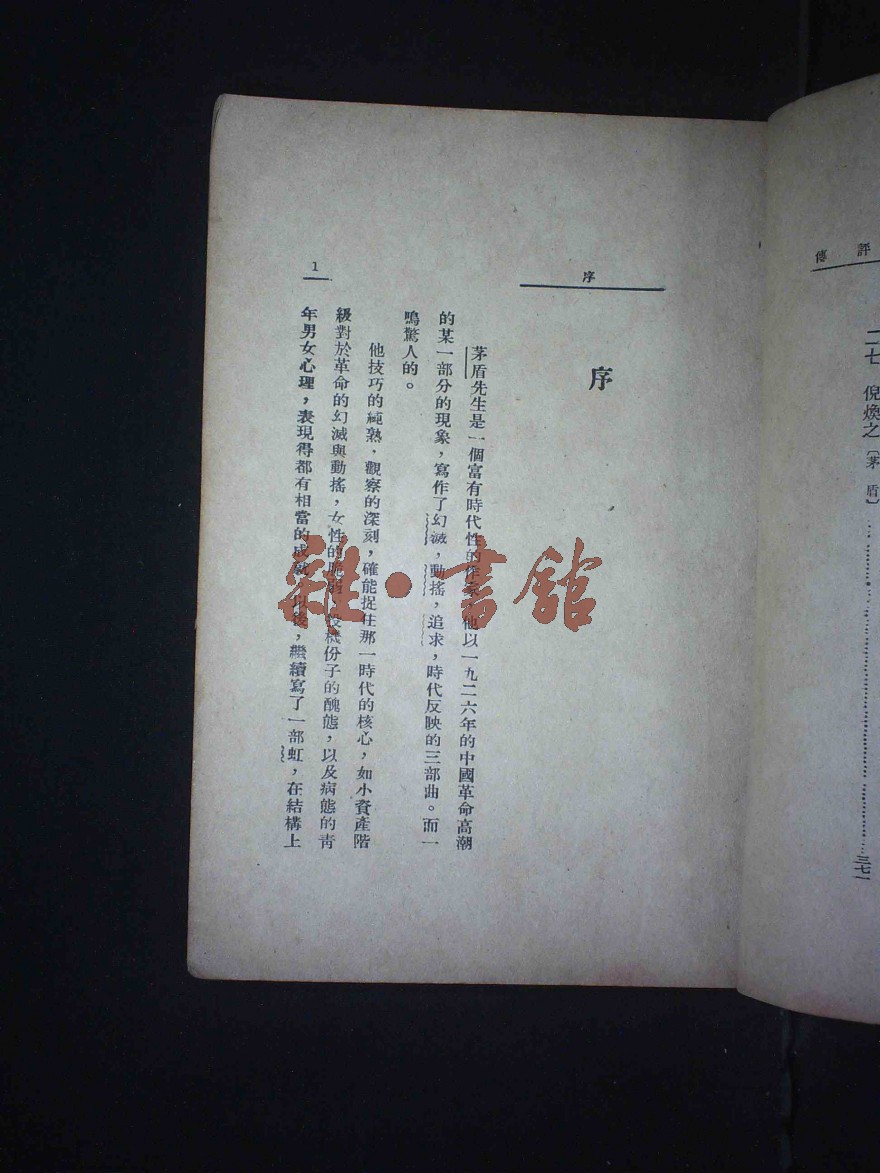 評傳
二七 倪煥之〔茅盾〕……三七一
序
序
茅盾先生是一個富有時代性的作家，他以一九二六年的中國革命高潮
的某一部分的現象，寫作了幻滅，動搖，追求，時代反映的三部曲。而一
鳴驚人的。
他技巧的純熟，觀察的深刻，確能捉住那一時代的核心，如小資產階
級對於革命的幻滅與動搖，女性的脆弱，投機份子的醜態，以及病態的青
年男女心理，表現得都有相當的成就。以後，繼續寫了一部虹，在結構上
1
雜·書館